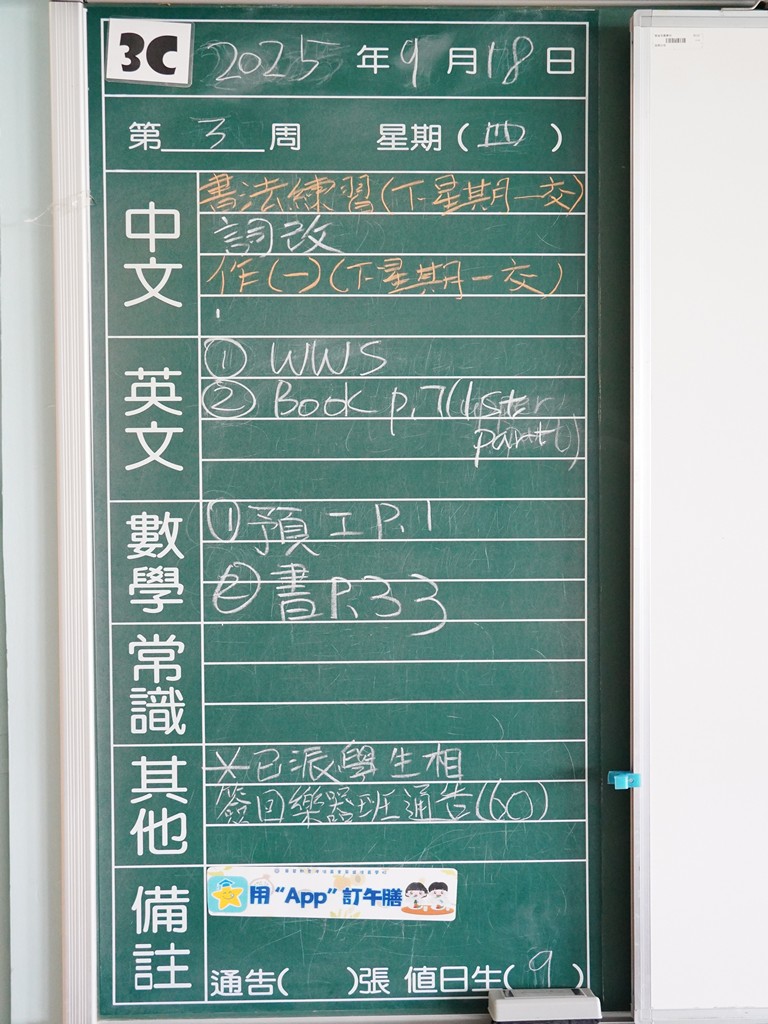 3C 2025 年 9 月 18 日
第 3 周 星期 ( 四 )
中文
書法練習(下星期一交)
詞改
作(一)(下星期一交)
英文
① WWS
② Book p.7(
part )
數學
① 預工P.1
② 書P.33
常識
其他
※已派學生相
簽回樂器班通告(60)
備註
用“App”訂午膳
通告( )張 值日生( 9 )